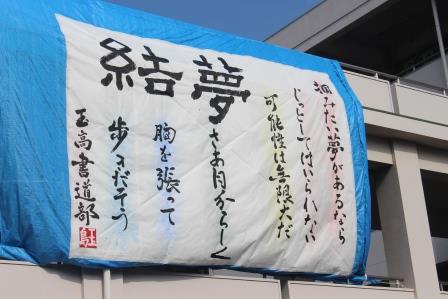 掴みたい夢があるなら
じっとしてはいられない
可能性は無限大だ
夢結
さあ自分らしく
胸を張って
歩みだそう
玉高書道部